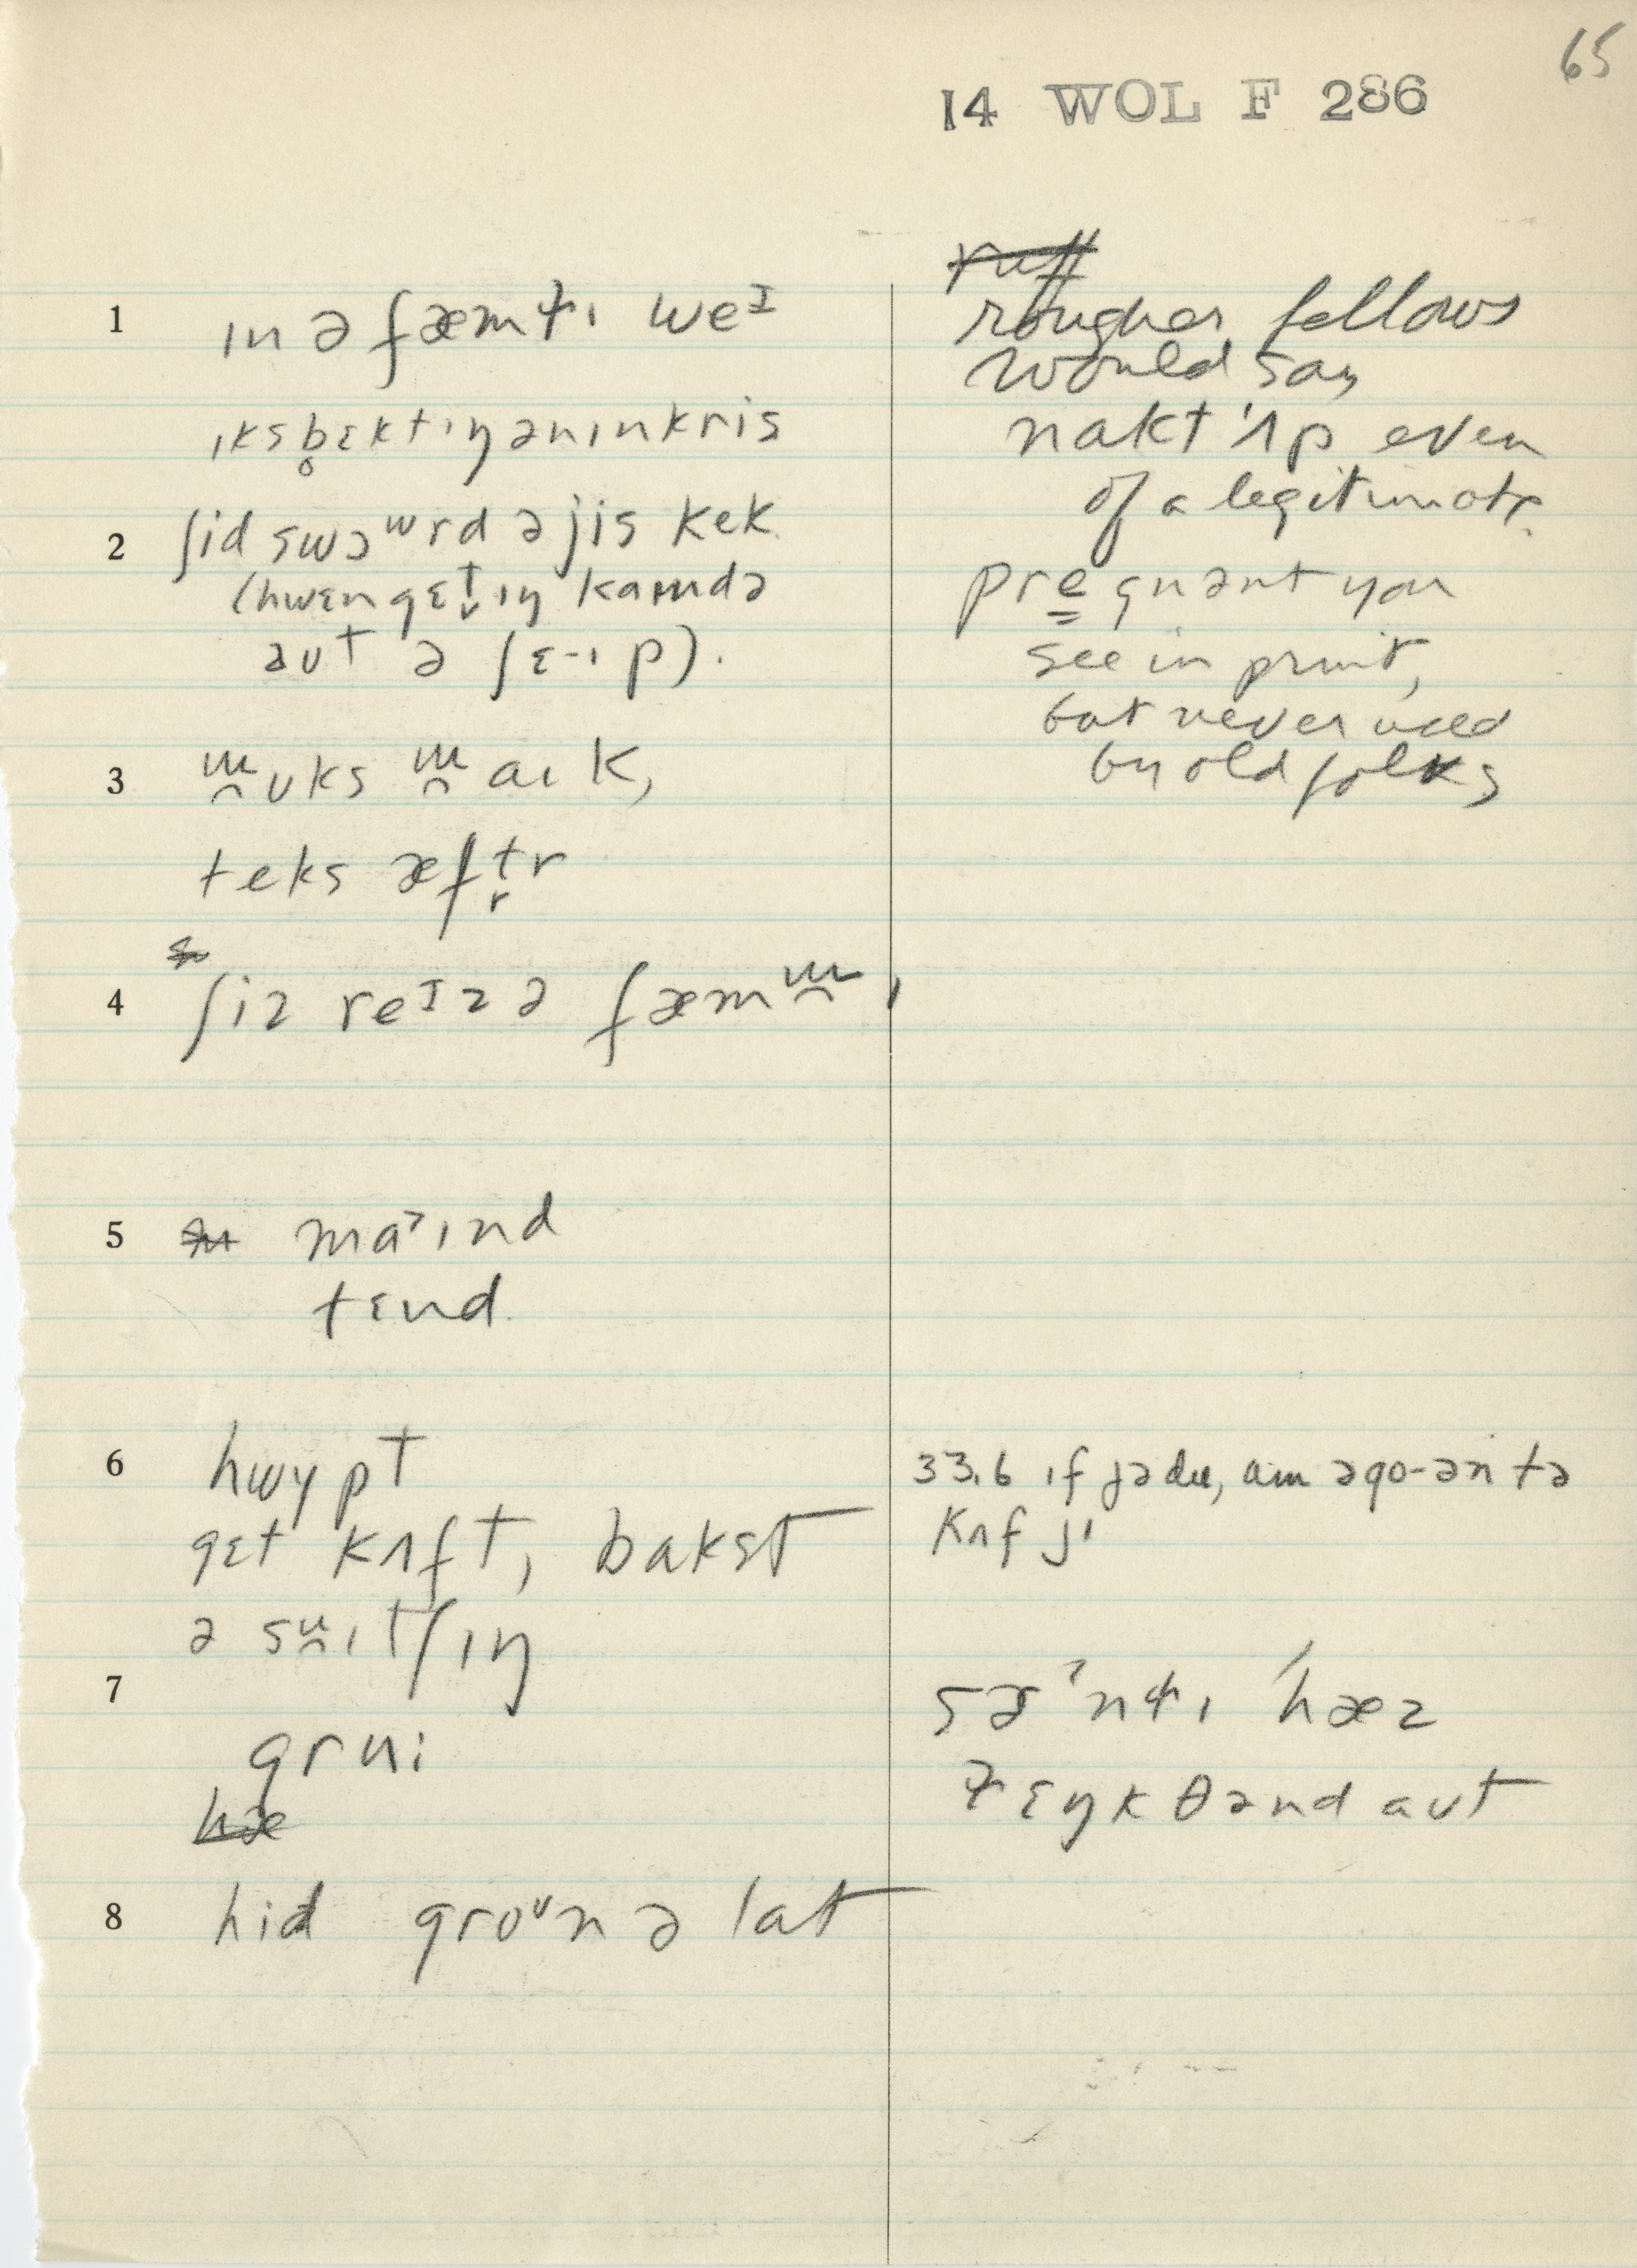 65
14 WOL F 286
1 ɪn ə fæmɫɪ weᴵ
ɪksb̥ɛktɪŋ ənɪnkris
2 ʃid swɔʷrd ə jis kek
(hwɛn gɛt̬ɪŋ kaɪndə
aut ə ʃɛ-ɪp).
3 ɯ̯uks ɯ̯aɪk,
teks æftr
4 ʃiz reᴵz ə fæmɯ̯ɪ
5 maˀɪnd
tɛnd
6 hwypt
gɛt kʌft, bakst
ə sɯ̯ɪtʃɪŋ
7
grui
8 hid groᵘn ə lat
rougher fellows
would say
nakt 'ʌp even
of a legitimate.
pregnant you
see in print,
but never used
by old folks
33.6 ɪf jədu, am əgo-ən tə
kʌf jɪ
hæz
ɫɛŋkθənd aut